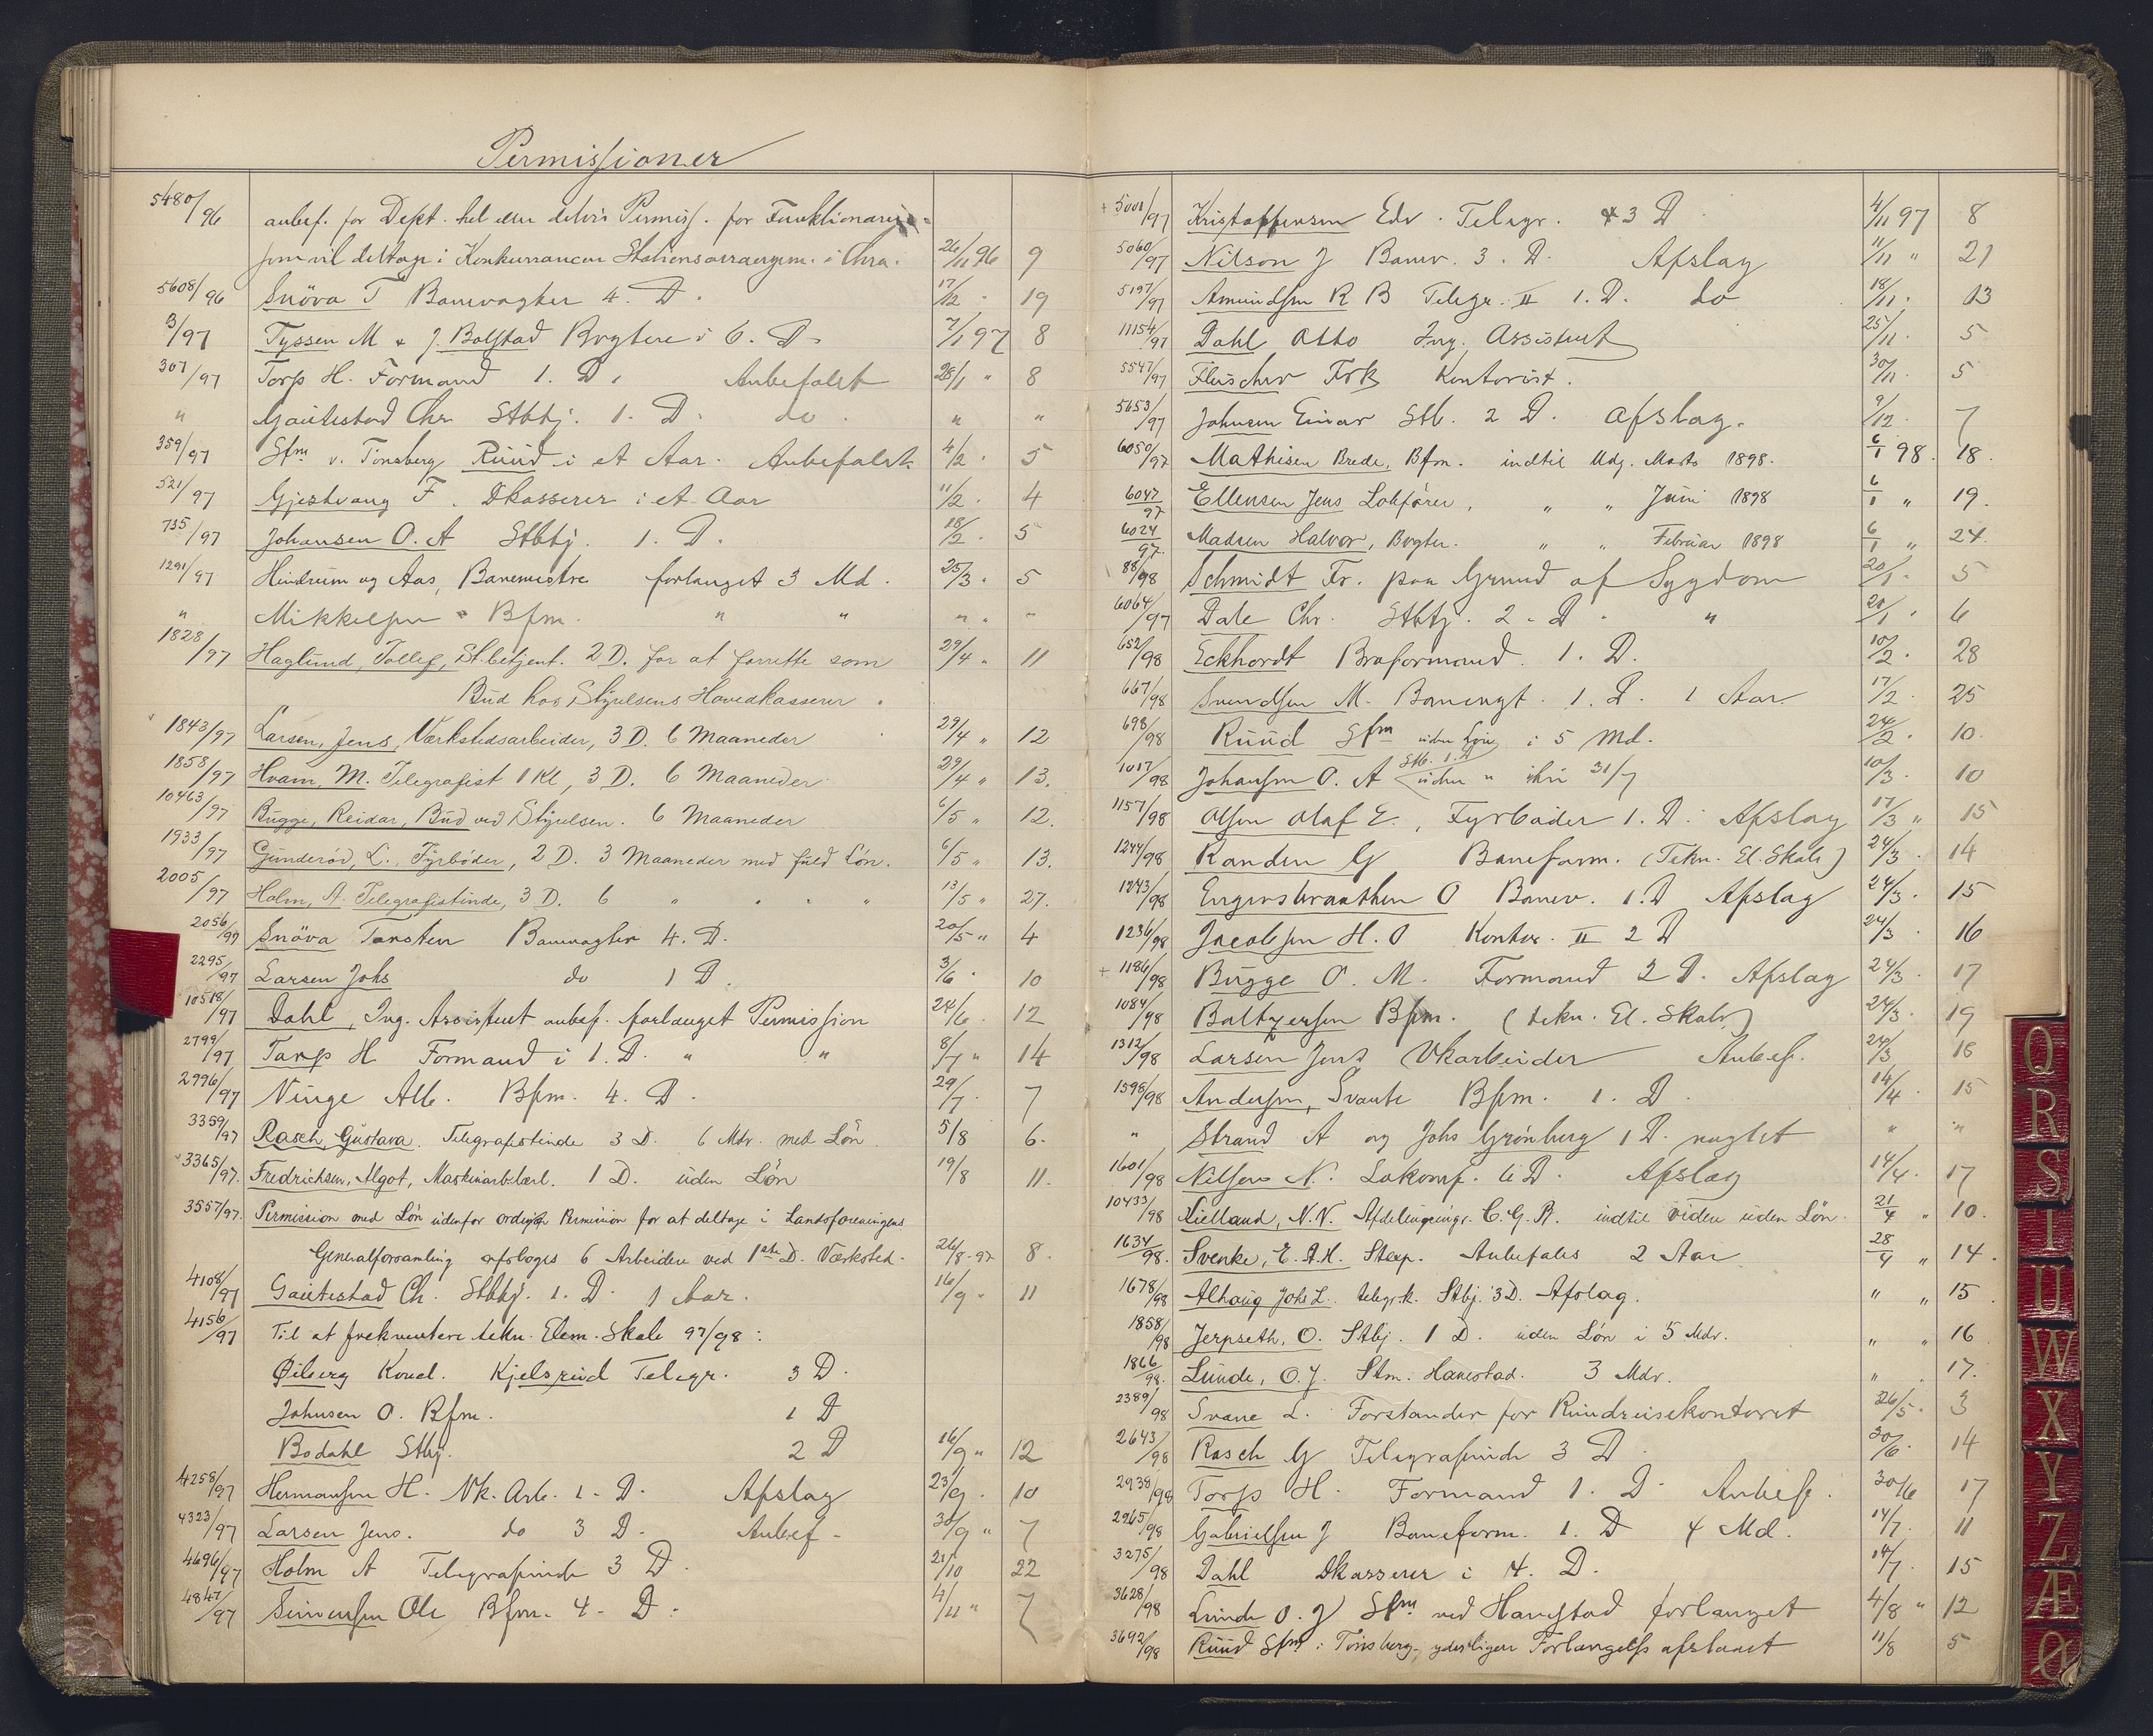 Permissioner
5480/96 anbef. for Dept. hel eller delvis Permiss. for Funktionærer
som vil deltage i Konkurrancen Stationsarrangem. i Chra. 26/11 96 9
5608/96 Snöva T Banevagter 4. D. 17/12 " 19
3/97 Tyssen M & J. Bolstad Bvgtere i 6. D. 7/1 97 8
307/97 Torp H. Formand 1. D. Anbefalet 28/1 " 8
" Gautestad Chr. Stbtj. 1. D. do " "
359/97 Sfm v. Tönsberg Ruud i et Aar. Anbefalet 4/2 . 5
521/97 Gjestvang F. Dkasserer i et Aar 11/2 . 4
735/97 Johansen O. A Stbtj. 1. D. 18/2 . 5
1291/97 Hindrum og Aas, Banemestre forlanget 3 Md. 25/3 . 5
" Mikkelsen " Bfm. " " " . "
1828/97 Haglund, Tollef, St.betjent. 2 D. for at forrette som 29/4 " 11
Bud hos Styrelsens Hovedkasserer.
1843/97 Larsen, Jens, Værkstedsarbeider, 3 D. 6 Maaneder 29/4 " 12
1858/97 Hvam, M. Telegrafist 1 Kl, 3 D. 6 Maaneder 29/4 " 13.
10463/97 Bugge, Reidar, Bud ved Styrelsen. 6 Maaneder 6/5 " 12.
1933/97 Gunderöd, L., Fyrbøder, 2 D. 3 Maaneder med fuld Løn. 6/5 " 13.
2005/97 Holm, A. Telegrafistinde, 3 D. 6 " " " " 13/5 " 27.
2056/97 Snöva Torsten Banevagter 4. D. 20/5 " 4
2295/97 Larsen Johs do 1 D. 3/6 . 10
10518/97 Dahl, Ing. Assistent anbef. forlanget Permission 24/6 . 12
2799/97 Torp H Formand i 1. D. " " 8/7 " 14
2996/97 Ninge Alb. Bfm. 4. D. 29/7 . 7
3359/97 Rasch, Gustava. Telegrafistinde 3 D. 6 Mdr. med Løn 5/8 6.
3365/97. Fredrichsen, Algot, Maskinarb.lærl. 1 D. uden Løn 19/8 11.
3557/97. Permission med Løn udenfor ordinær Permission for at deltage i Landsforeningens
Generalforsamling afsloges 6 Arbeidere ved 1ste D. Værksted. 26/8-97 8.
4108/97 Gautestad Ch. Stbtj. 1. D. 1 Aar. 16/9 . 11
4156/97 Til at frekventere tekn. Elem. Skole 97/98:
Øiberg Kond. Kjelsrud Telegr. 3 D.
Johnsen O. Bfm. 1 D
Bodahl Stbj. 2 D 16/9 " 12
4258/97 Hermansen H. Vk. Arb. 1. D. Afslag 23/9 . 10
4323/97 Larsen Jens. do 3 D. Anbef. 30/9 " 7
4696/97 Holm A Telegrafinde 3 D. 21/10 22
4847/97 Simensen Ole Bfm. 4. D. 4/11 " 7
5001/97 Kristoffersen Edv. Telegr. 3 D 4/11 97 8
5060/97 Nilson J Banev. 3. D. Afslag 11/11 " 21
5197/97 Amundsen R B Telegr. II 1. D. do 18/11 . 13
11154/97 Dahl Otto Ing. Assistent 25/11 . 5
5547/97 Fleischer Frk Kontorist. 30/11 . 5
5653/97 Johnsen Einar Stb. 2 D. Afslag. 9/12 . 7
6050/97 Mathisen Brede, Bfm. indtil Udg. Marts 1898. 6/1 98. 18.
6047/97 Ellensen Jens Lokfører, " " Juni 1898 6/1 " 19.
6024/97 Madsen Halvor, Bvgter. " " Februar 1898 6/1 " 24.
88/98 Schmidt Fr. paa Grund af Sygdom 20/1 . 5
6064/97 Dale Chr. Stbtj. 2. D. " 20/1 . 6
652/98 Eckhordt Braformand. 1. D. 10/2 . 28
667/98 Svendsen M. Banevgt. 1. D. 1 Aar 17/2 . 25
698/98 Ruud Sfm uden Løn i 5 Md. 24/2 . 10.
1017/98 Johansen O. A Stb. 1. D uden " 31/7 10/3 . 10
1157/98 Olsen Olaf E., Fyrbøder 1. D. Afslag 17/3 " 15
1244/98 Randen G Baneform. (Tekn. El. Skole) 24/3 . 14
1243/98 Engensbraathen O Banev. 1. D Afslag 24/3 . 15
1236/98 Jacobsen H. O Kontor. II 2 D 24/3 . 16
1186/98 Bugge O. M. Formand 2 D. Afslag 24/3 . 17
1084/98 Baltzersen Bfm. (tekn. El. Skole) 24/3 . 19
1312/98 Larsen Jens Vkarbeider Anbef. 24/3 18
1598/98 Andersen, Svante Bfm. 1. D. 14/4 . 15
" Strand A og Johs Grönberg 1 D. nægtet " "
1601/98 Nilsen N. Lokomf. 6 D. Afslag 14/4 . 17
10433/98 Kielland, N.N. Afdelingsingr. C. G. A. indtil videre uden Løn. 21/4 " 10.
1634/98. Svenke, E. A. H. Stexp. Anbefales 2 Aar 28/4 " 14.
1678/98 Alhaug Johs L. telegr.k. Stbj. 3 D. Afslag. " " 15.
1858/98 Jerpseth, O. Stbj. 1 D. uden Løn i 5 Mdr. " " 16
1866/98. Lunde, O. J. Stm. Hanestad. 3 Mdr. " " 17.
2389/98 Svane L. Forstander for Rundreisekontoret 26/5 . 3
2643/98 Rasch G Telegrafinde 3 D. 30/6 . 14
2938/98 Torp H. Formand 1. D. Anbef. 30/6 17
2965/98 Gabrielsen J Baneform. 1. D 4 Md. 14/7 . 11
3275/98 Dahl Dkasserer i 4. D. 14/7 . 15
3628/98 Lunde O. J Sfm ved Hanestad forlanget 4/8 " 12
3692/98 Ruud Sfm i Tönsberg yderligere Forlængelse afslaaet 11/8 5
Q
R
S
T
U
W
X
Y
Z
Æ
Ø